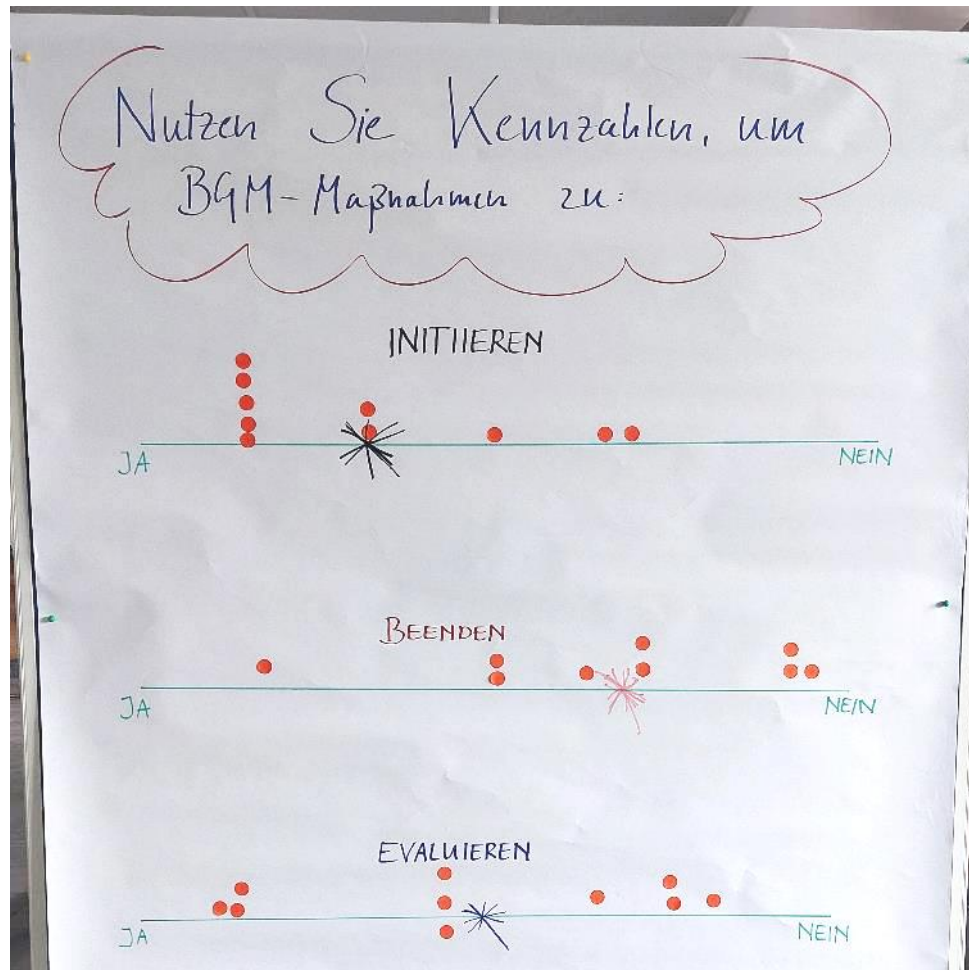 Nutzen Sie Kennzahlen, um
BGM-Maßnahmen zu:
INITIIEREN
JA NEIN
BEENDEN
JA NEIN
EVALUIEREN
JA NEIN